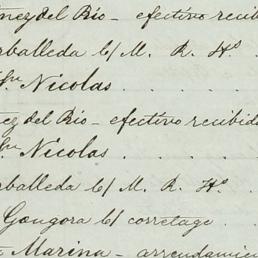 nez del Rio - efectivo recibi
rballeda c/ M. R. Hº .
Nicolas . . . .
ez del Rio - efectivo recibido
Nicolas . . . .
rballeda c/ M. R. Hº .
Gongora c/ corretage .
Marina - arrendamien